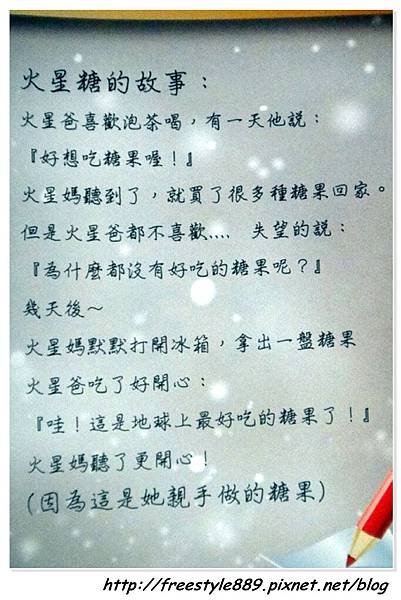 火星糖的故事：
火星爸喜歡泡茶喝，有一天他說：
『好想吃糖果喔！』
火星媽聽到了，就買了很多種糖果回家。
但是火星爸都不喜歡.... 失望的說：
『為什麼都沒有好吃的糖果呢？』
幾天後～
火星媽默默打開冰箱，拿出一盤糖果
火星爸吃了好開心：
『哇！這是地球上最好吃的糖果了！』
火星媽聽了更開心！
(因為這是她親手做的糖果)
http://freestyle889.pixnet.net/blog